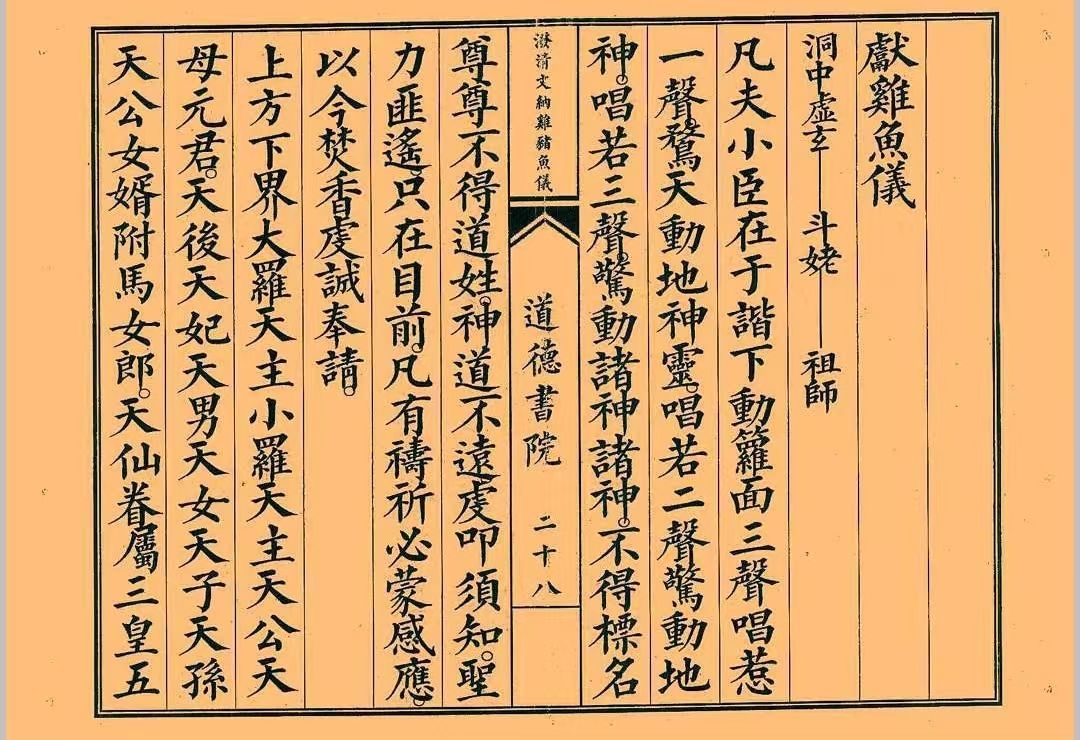 獻雞魚儀
洞中虛玄——斗姥——祖師
凡夫小臣在于諧下動籮面三聲唱惹
一聲。驚天動地神靈。唱若二聲驚動地
神。唱若三聲。驚動諸神諸神。不得標名
澂清文納雞豬魚儀 道德書院 二十八
尊尊不得道姓。神道不遠虔叩須知。聖
力匪遙。只在目前。凡有禱祈必蒙感應。
以今焚香虔誠奉請。
上方下界大羅天主小羅天主天公天
母元君。天後天妃天男天女天子天孫
天公女婿附馬女郎。天仙眷屬三皇五